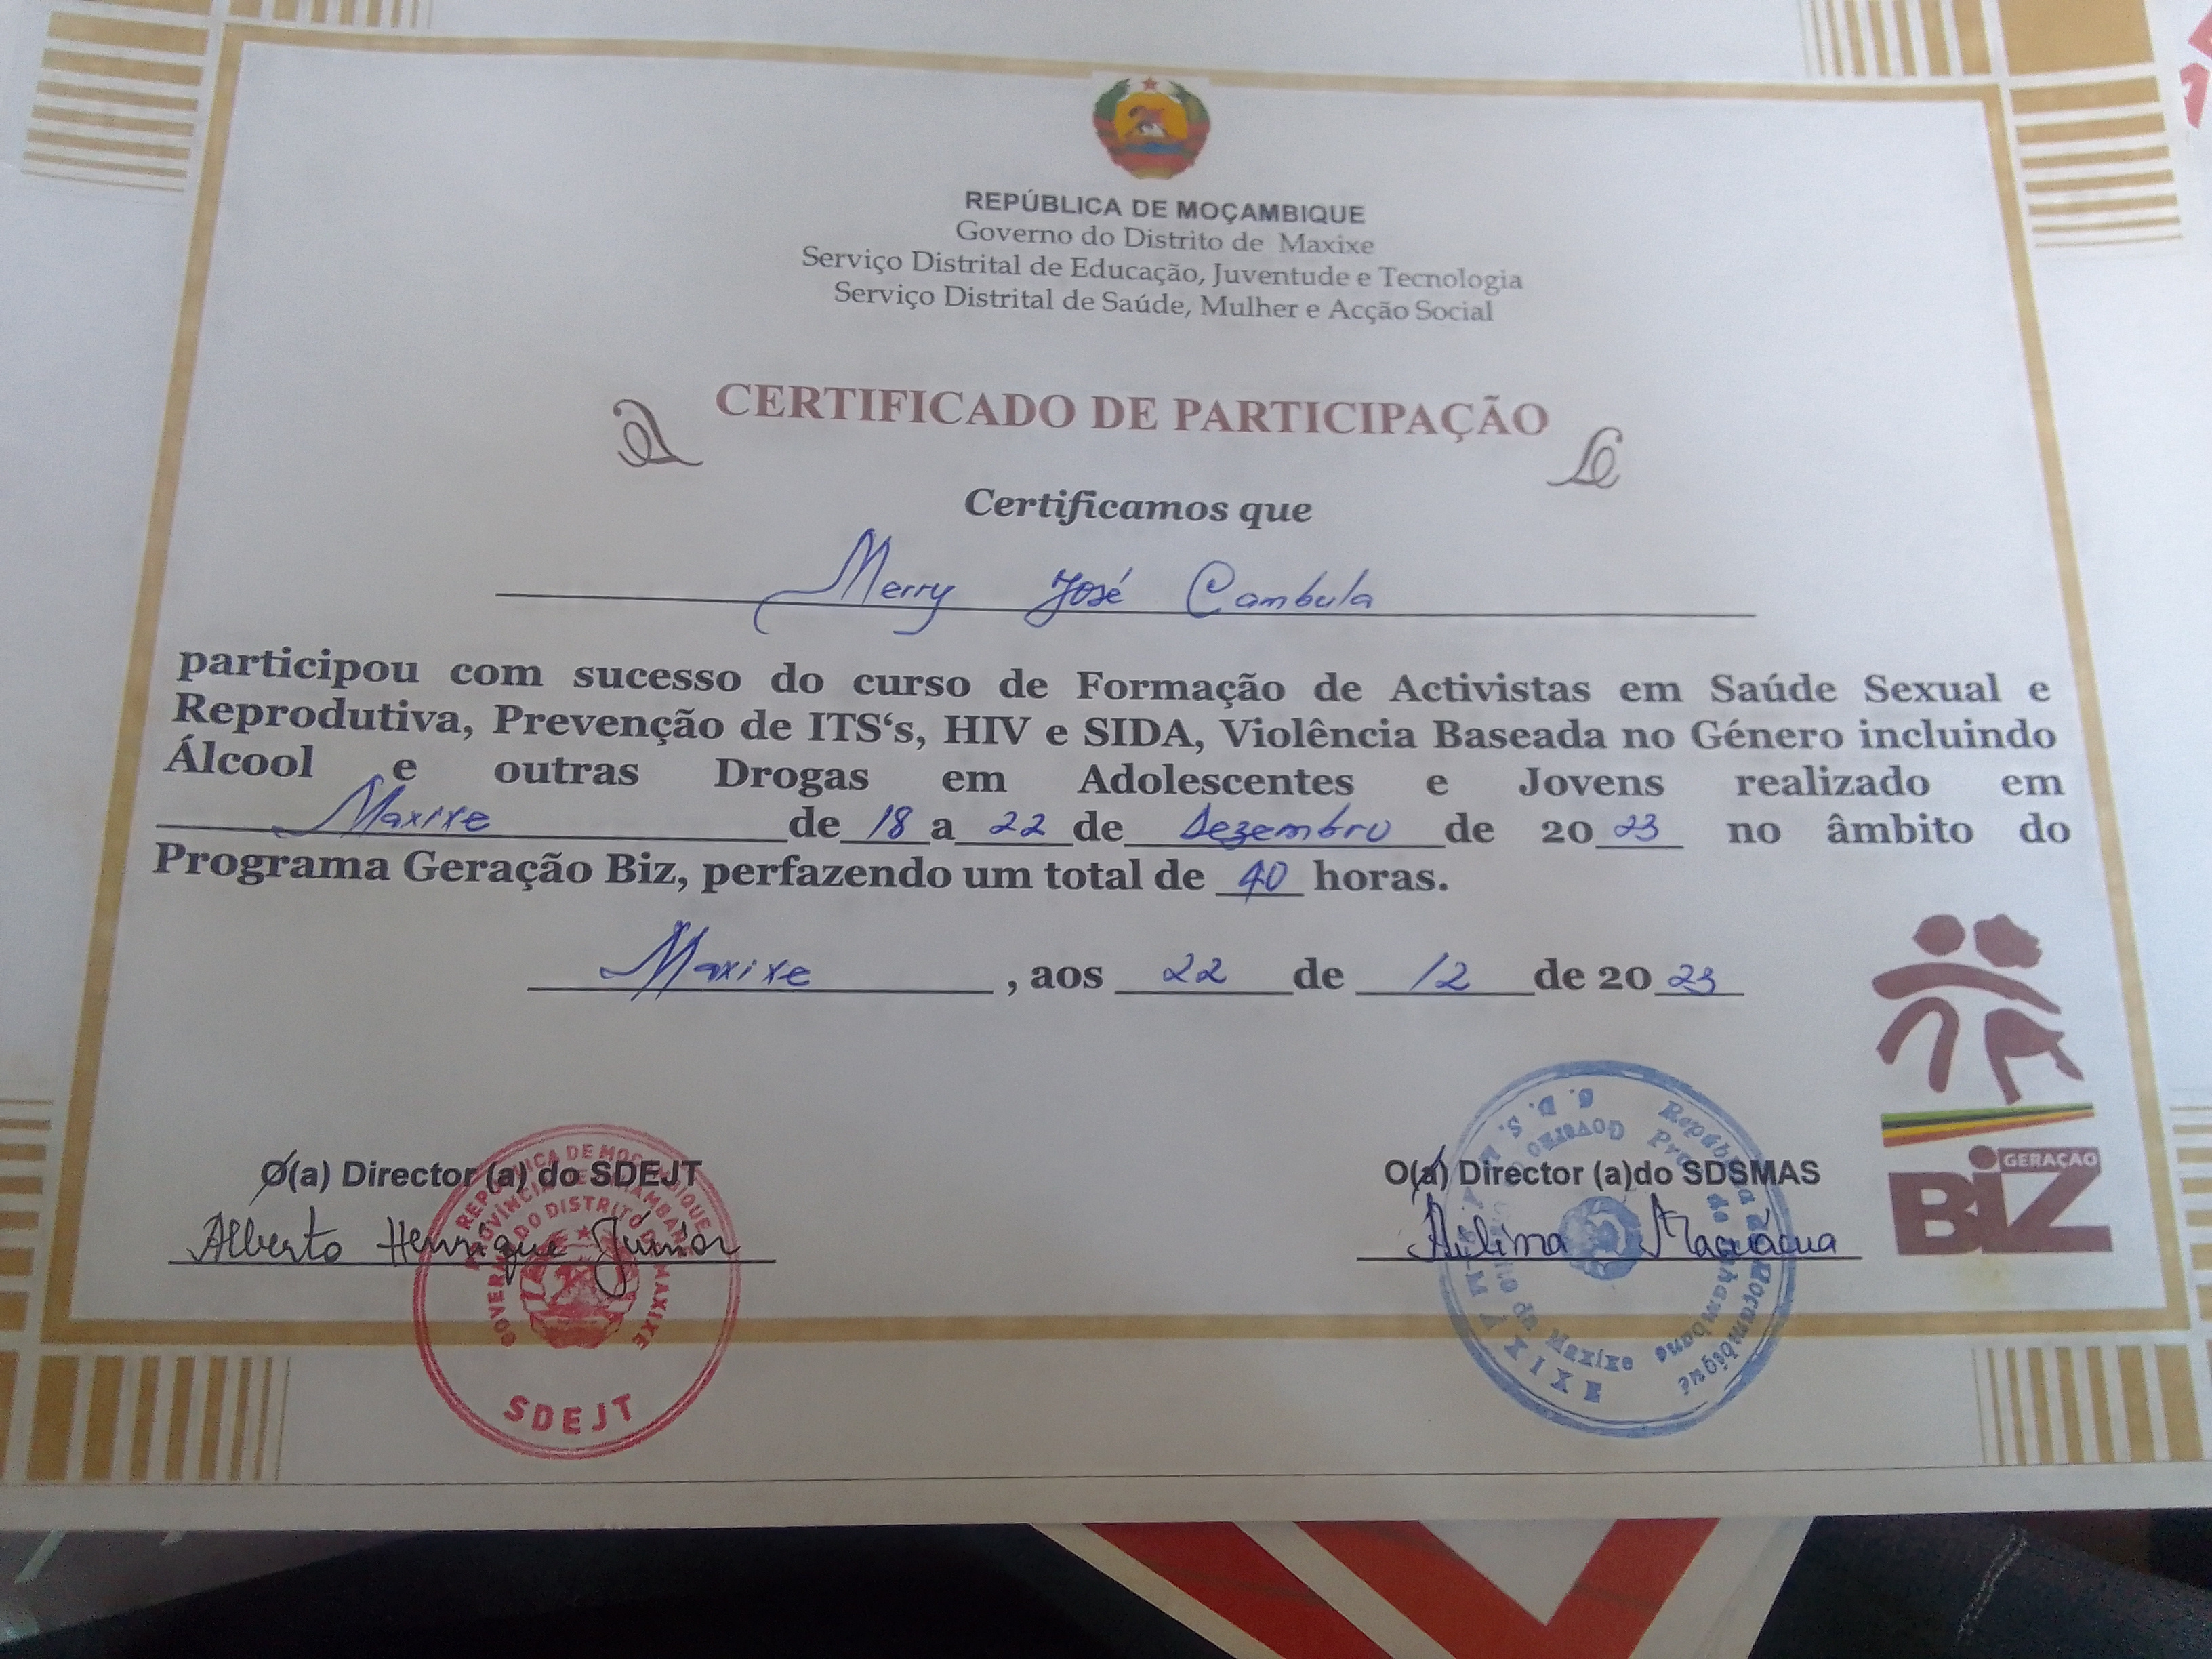 REPÚBLICA DE MOÇAMBIQUE
Governo do Distrito de Maxixe
Serviço Distrital de Educação, Juventude e Tecnologia
Serviço Distrital de Saúde, Mulher e Acção Social
CERTIFICADO DE PARTICIPAÇÃO
Certificamos que
Merry José Cambula
participou com sucesso do curso de Formação de Activistas em Saúde Sexual e
Reprodutiva, Prevenção de ITS‘s, HIV e SIDA, Violência Baseada no Género incluindo
Álcool e outras Drogas em Adolescentes e Jovens realizado em
Maxixe de 18 a 22 de Dezembro de 2023 no âmbito do
Programa Geração Biz, perfazendo um total de 40 horas.
Maxixe, aos 22 de 12 de 2023
O(a) Director (a) do SDEJT
Alberto Henrique Júnior
REPÚBLICA DE MOÇAMBIQUE
PROVÍNCIA DE INHAMBANE
GOVERNO DO DISTRITO DE MAXIXE
SDEJT
O(a) Director (a)do SDSMAS
República de Moçambique
de Inhambane
Governo da Maxixe
MAXIXE
GERAÇÃO
BIZ